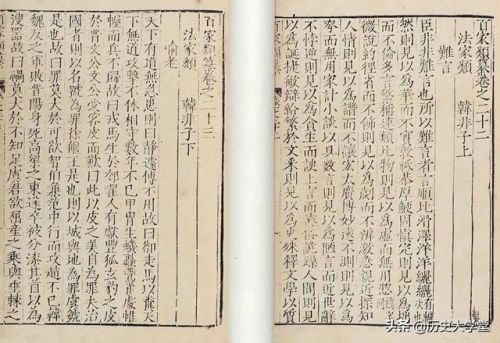 百家類纂卷之二十二
法家類　韓非子上
難言
臣非非難言也所以難言者言順比滑澤洋洋纚纚有編次也
然則見以為華而不實敦祗恭厚鯁固慎完則見以為拙
而不倫多言繁稱連類比物則見以為虛而無用
微說約徑省而不飾則見以為劌而不辯激急親近探知
人情則見以為譖而不讓宏大廣博妙遠不測則見以為夸
而無用家計小談以具數言則見以為陋言而近世辭
不悖逆則見以為貪生而諛上言而遠俗詭躁人間則見
以為誕捷敏辯給繁於文采則見以為史殊釋文學以質
百家類纂卷之二十三
法家類　韓非子下
喻老
天下有道無急患則曰靜遽傳不用故曰卻走馬以糞天
下無道攻擊不休相守數年不已甲胄生蟣蝨燕雀處帷
幄而兵不歸故曰戎馬生於郊翟人有獻豐狐玄豹之皮
於晉文公文公受客皮而歎曰此以皮之美自為罪夫治
國者則以名號為罪徐偃王是也則以城與地為罪虞虢
是也故曰罪莫大於可欲智伯兼范中行而攻趙不已韓
魏反之軍敗晉陽身死高梁之東遂卒被分漆其首以為
溲器故曰禍莫大於不知足虞君欲屈產之乘與垂棘之
头条 @历史大学堂